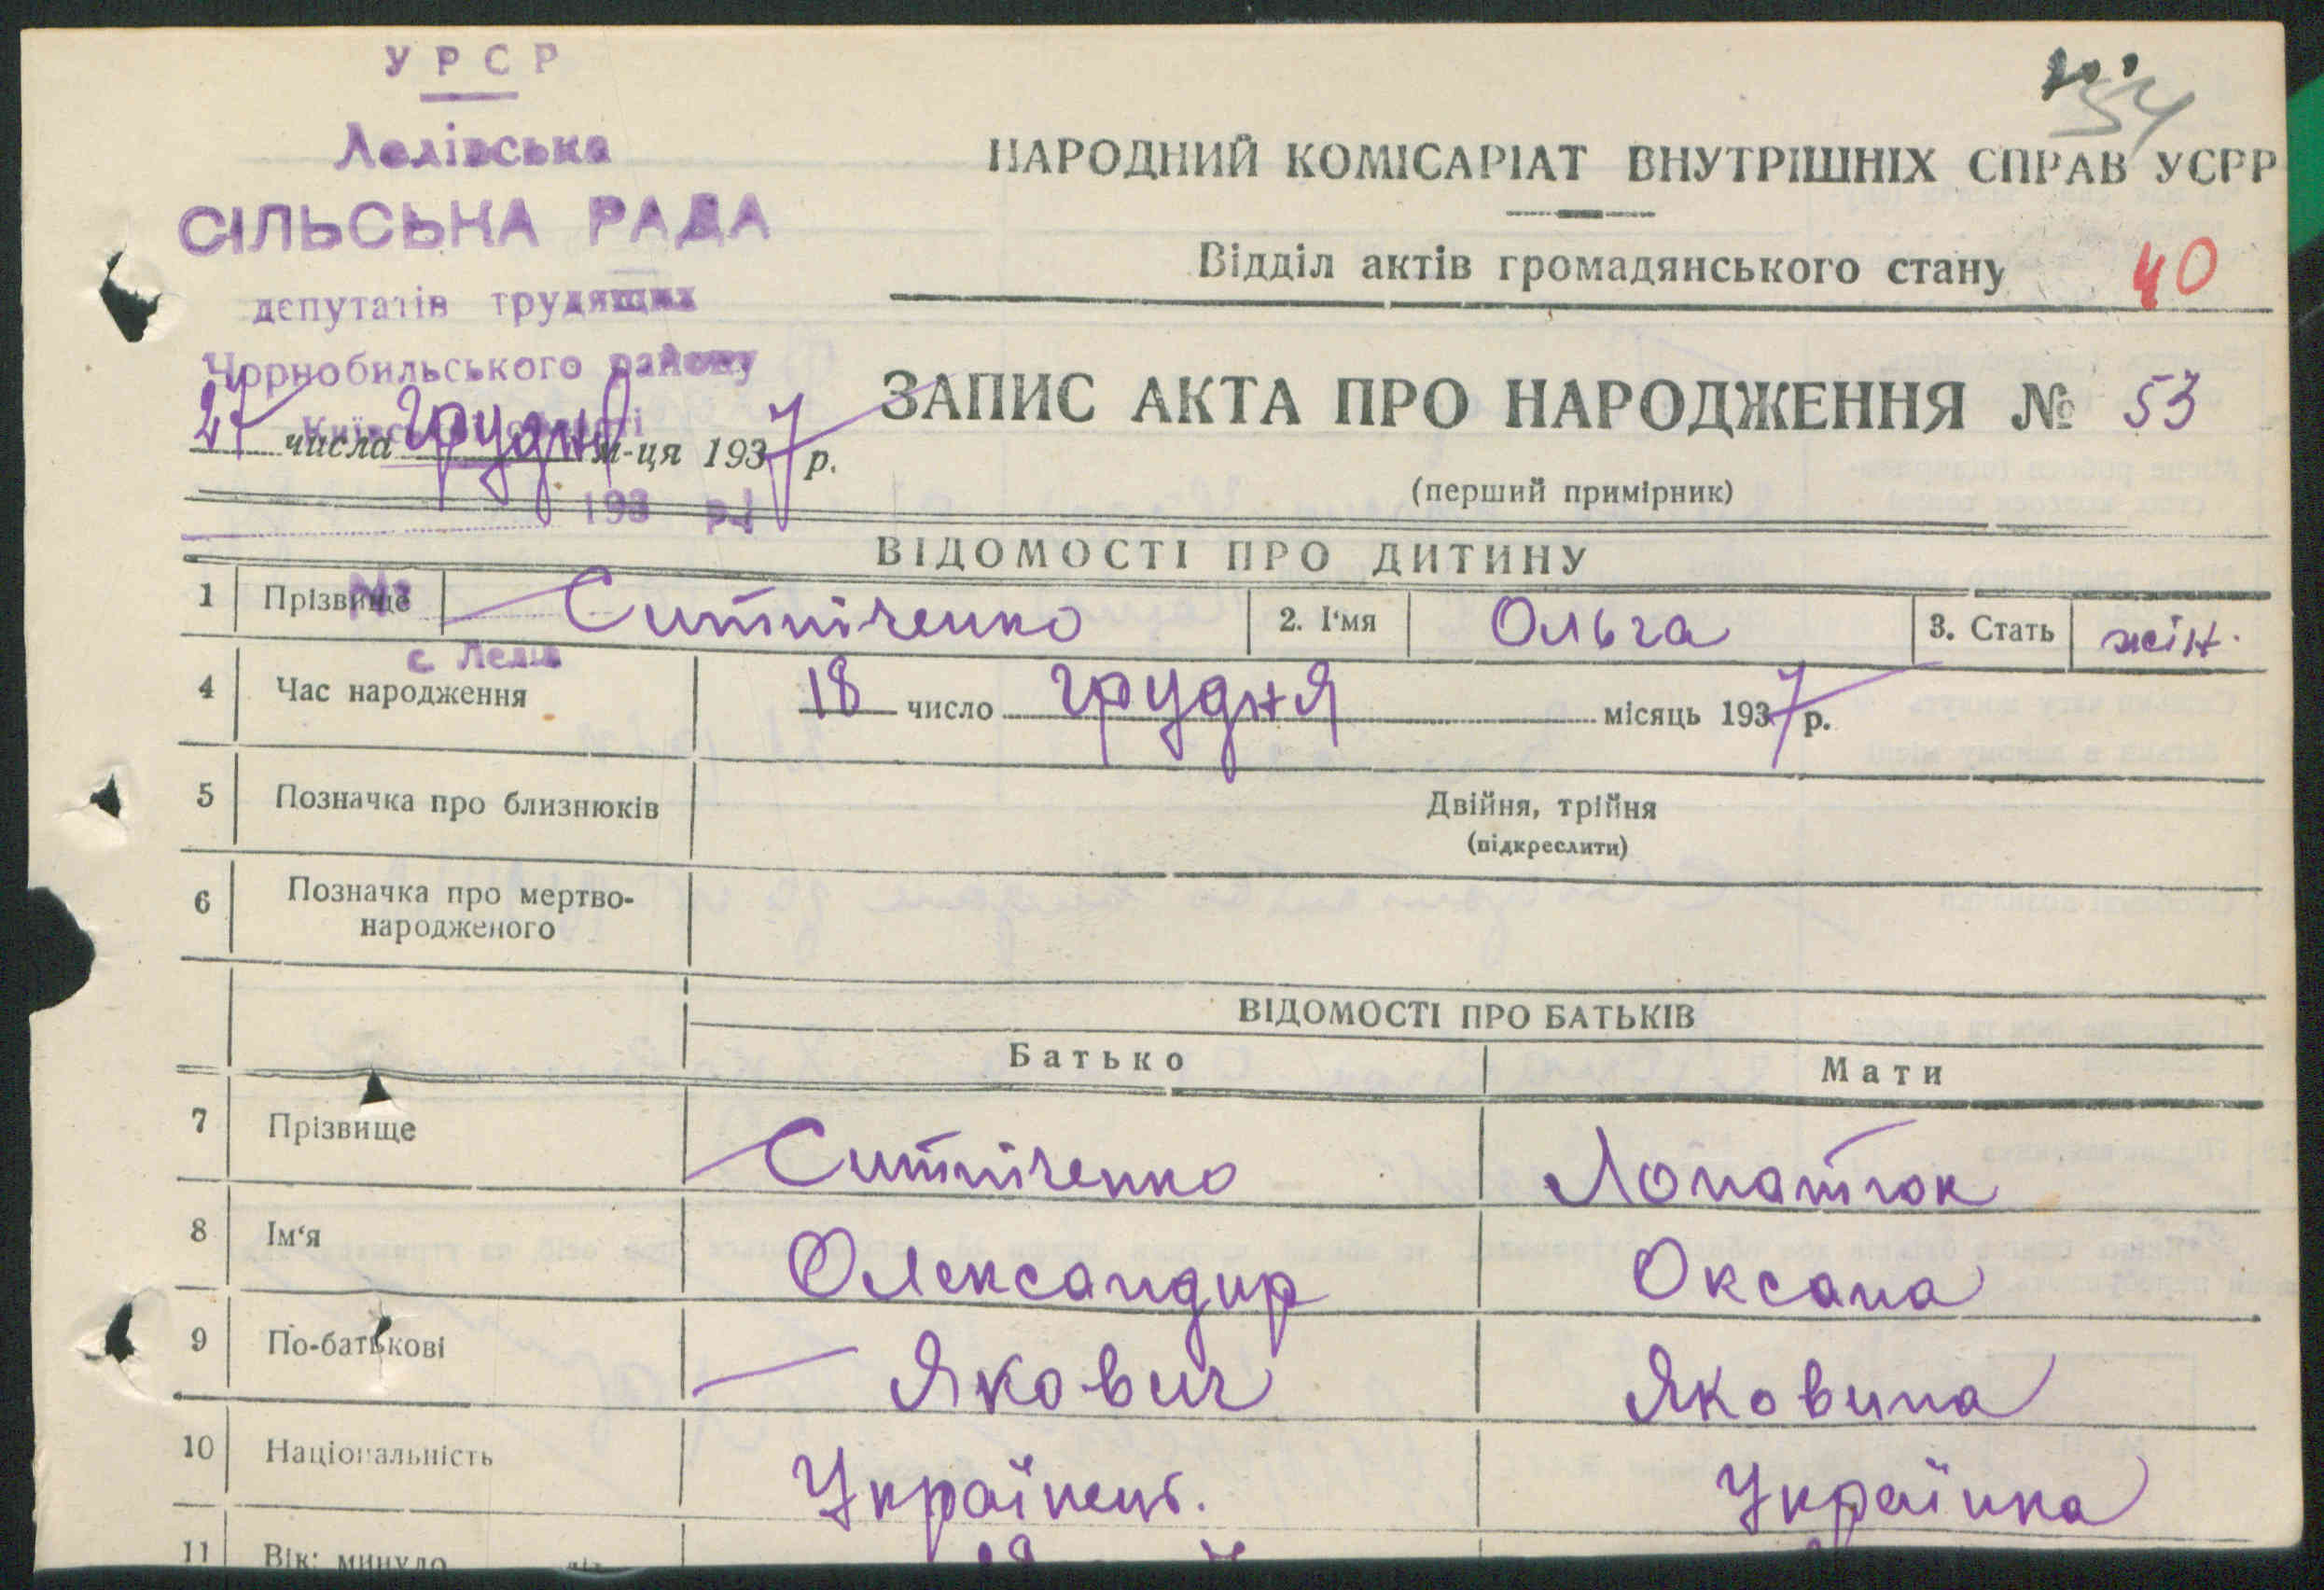 УРСР
Лелівська
СІЛЬСЬКА РАДА
депутатів трудящих
Чорнобильського району
Київської області
193 р.
№
с. Лелів
34
НАРОДНИЙ КОМІСАРІАТ ВНУТРІШНІХ СПРАВ УСРР
Відділ актів громадянського стану 40
27 числа грудня м-ця 1937 р.
ЗАПИС АКТА ПРО НАРОДЖЕННЯ № 53
(перший примірник)
ВІДОМОСТІ ПРО ДИТИНУ
1 Прізвище Ситніченко 2. І'мя Ольга 3. Стать жін.
4 Час народження 18 число грудня місяць 1937 р.
5 Позначка про близнюків Двійня, трійня
(підкреслити)
6 Позначка про мертво-
народженого
ВІДОМОСТІ ПРО БАТЬКІВ
Батько Мати
7 Прізвище Ситніченко Лопатюк
8 Ім'я Олександир Оксана
9 По-батькові Якович Яковина
10 Національність Українець. Українка
11 Вік: минуло літ